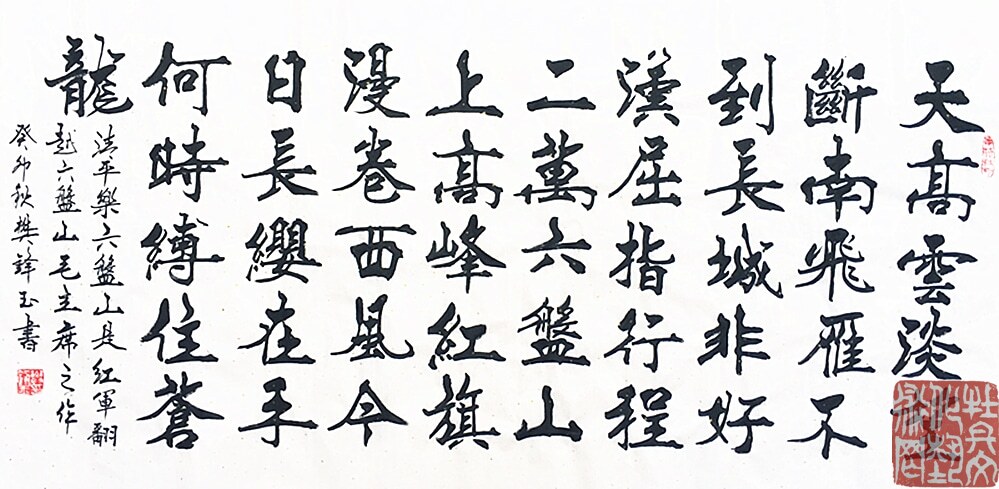 天高雲淡
斷南飛雁不
到長城非好
漢屈指行程
二萬六盤山
上高峰紅旗
漫卷西風今
日長纓在手
何時縛住蒼
龍
清平樂六盤山是紅軍翻
越六盤山毛主席之作
癸卯秋樊鋒玉書